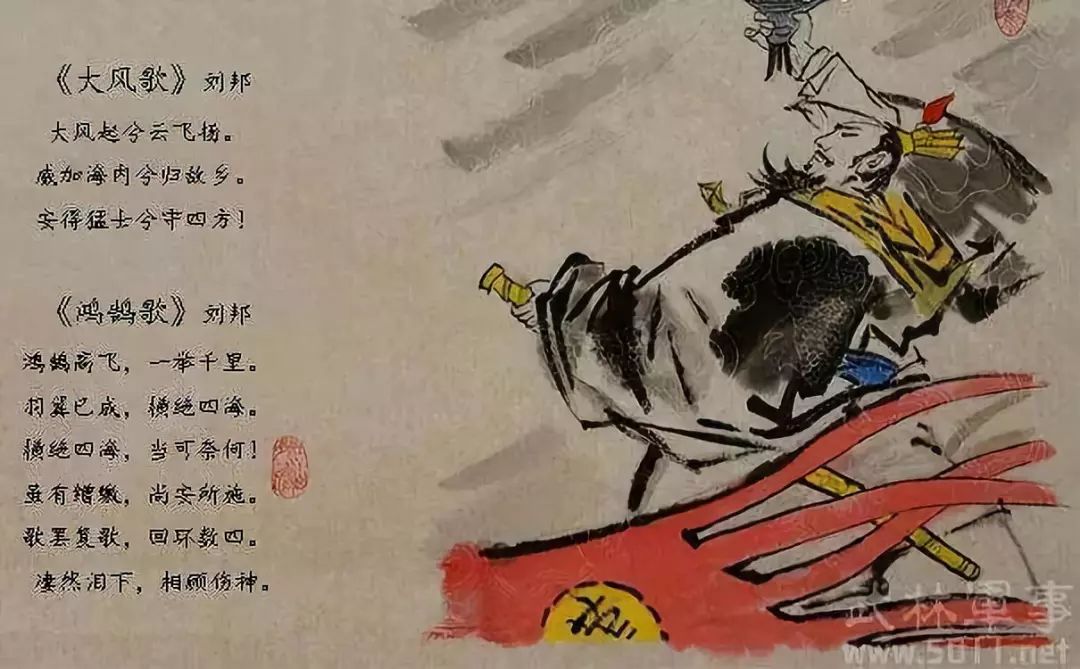 《大风歌》刘邦
大风起兮云飞扬。
威加海内兮归故乡。
安得猛士兮守四方！
《鸿鹄歌》刘邦
鸿鹄高飞，一举千里。
羽翼已成，横绝四海。
横绝四海，当可奈何！
虽有矰缴，尚安所施。
歌罢复歌，回环数四。
凄然泪下，相顾伤神。
武林军事
www.5011.net